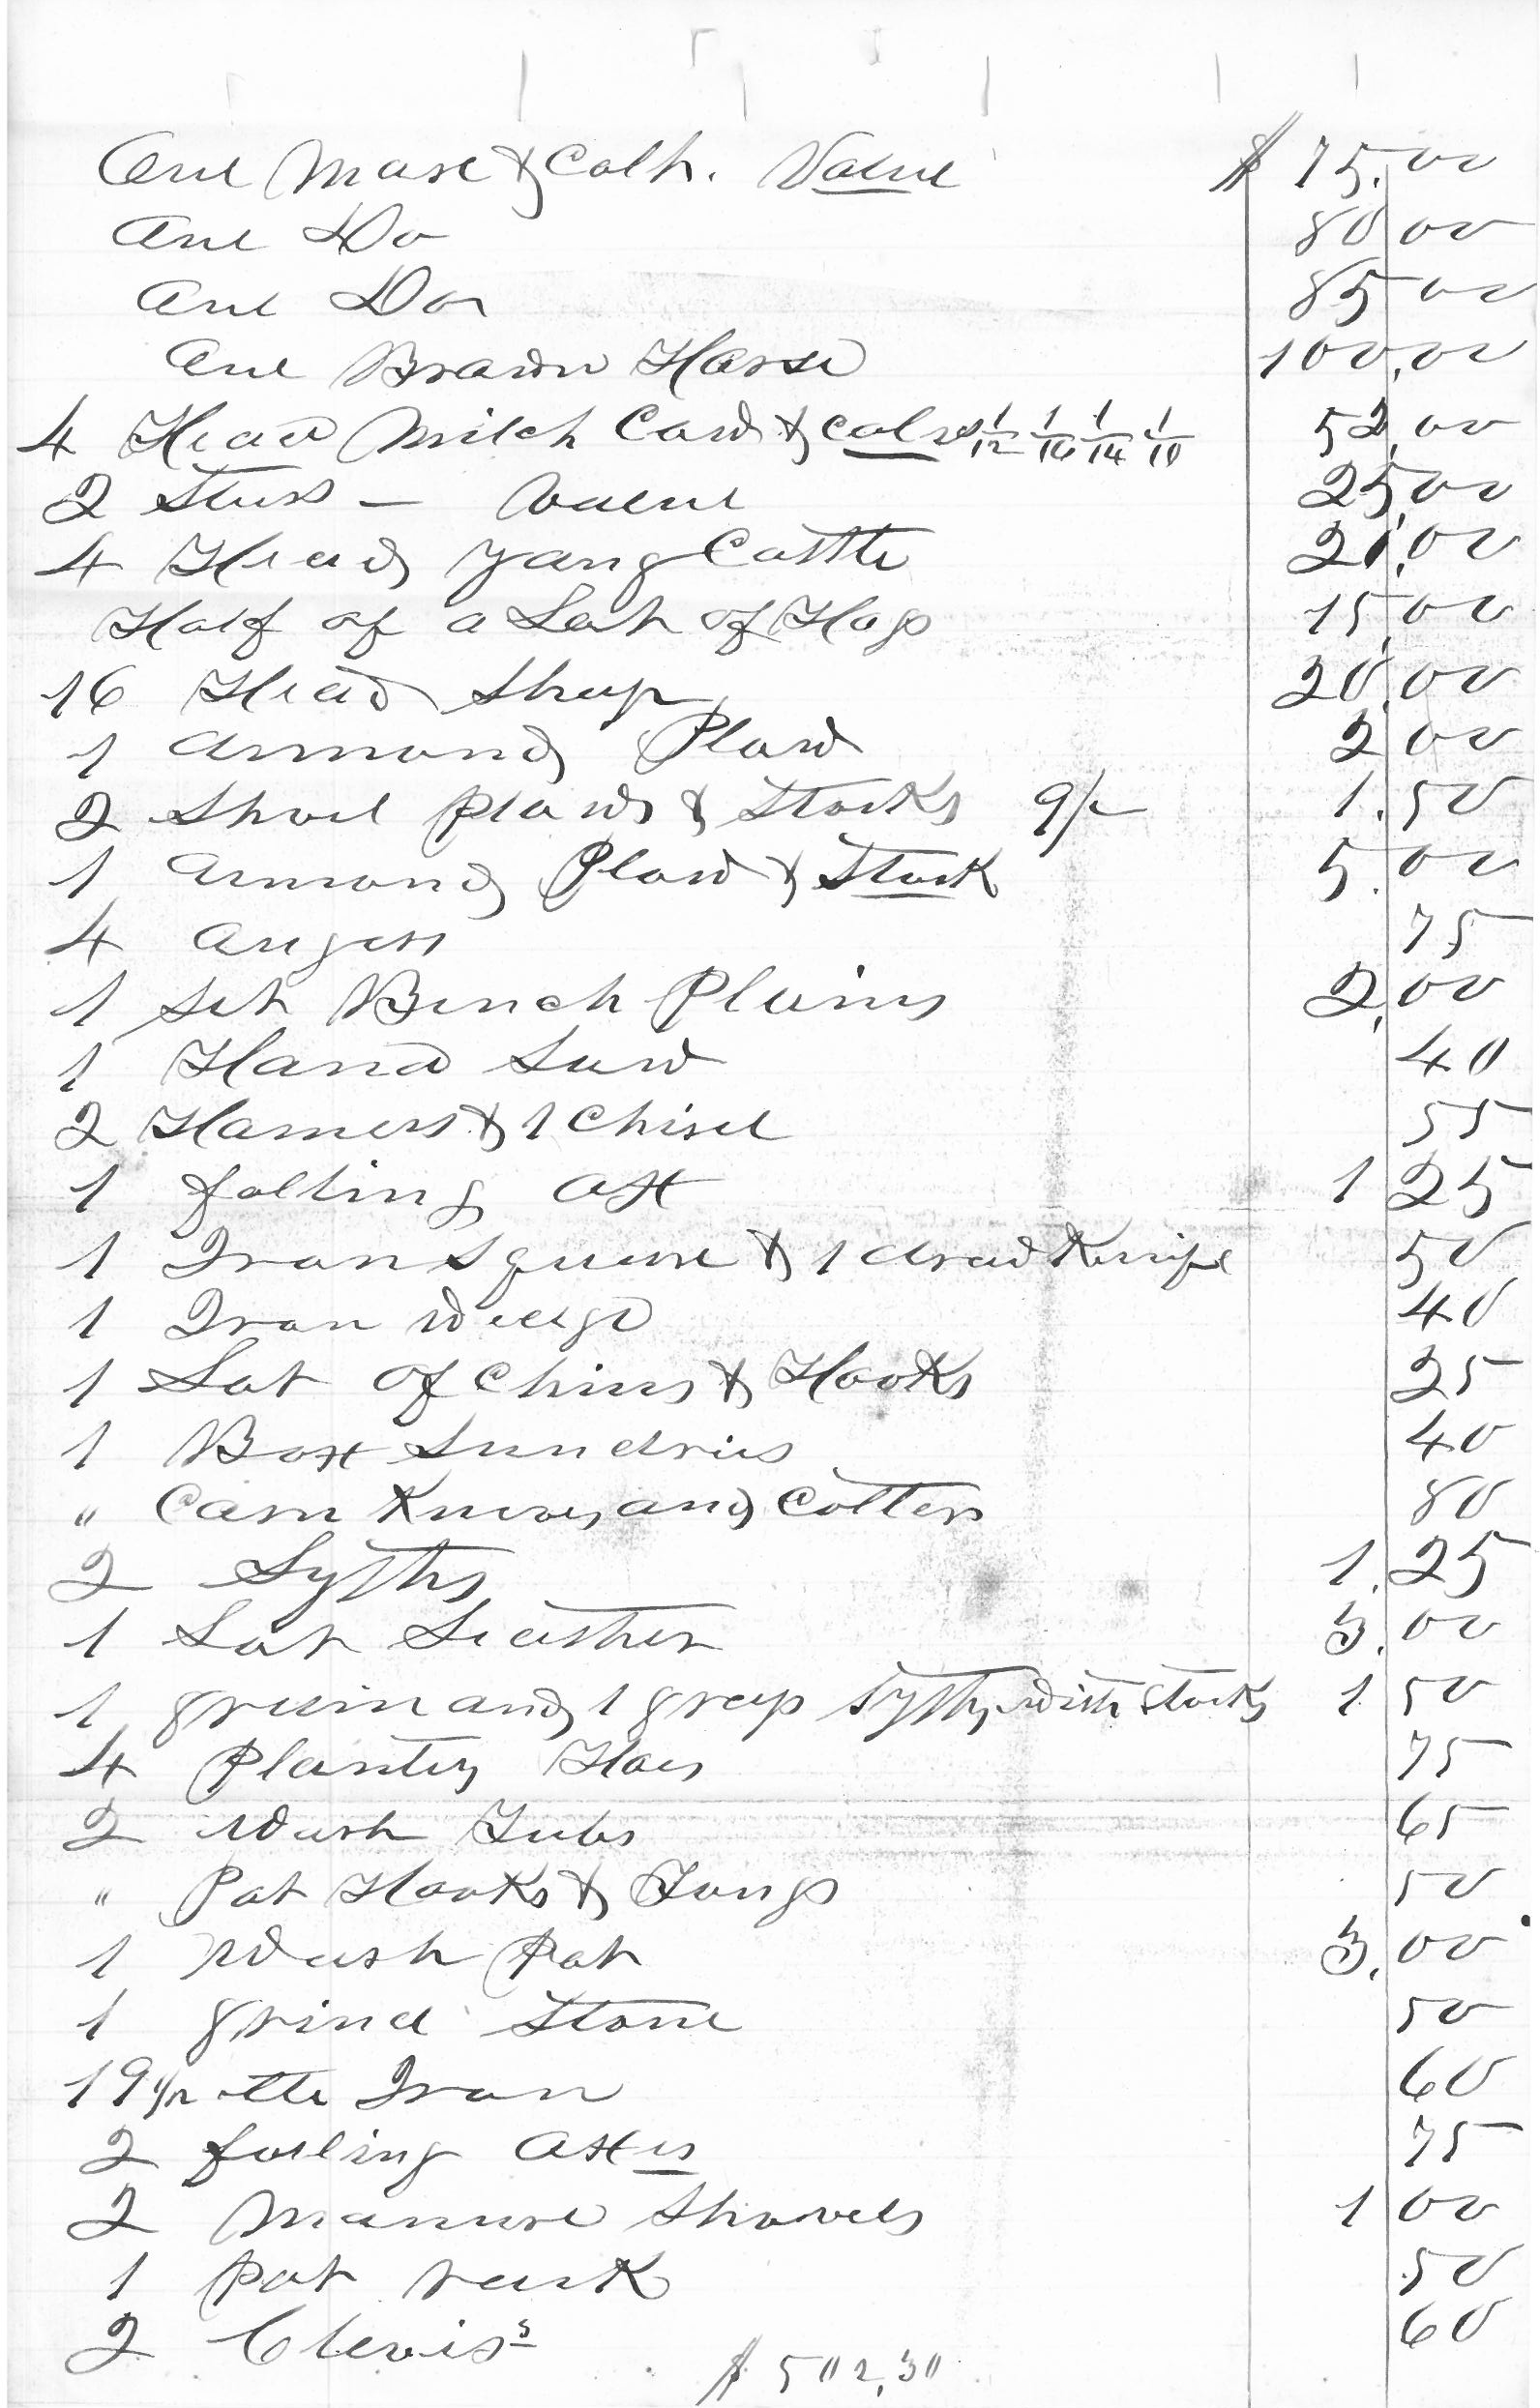 One Mare & Colt. Value $ 75.00
One Do 80 00
One Do 85 00
One Brown Horse 100.00
4 Head Milch Cows & calves 1/12 1/16 1/14 1/10 52.00
2 Steers — Value 25,00
4 Head Young Cattle 21.00
Half of a Lot of Hogs 15,00
16 Head Sheep 20,00
1 Armond Plow 2 00
2 Shovel Plows & Stocks 9/- 1.50
1 Armond Plow & Stock 5.00
4 Augers 75
1 Set Bench Plains 2,00
1 Hand Saw 40
2 Hamers & 1 Chisel 55
1 falling Axe 1 25
1 Iron Square & 1 draw Knife 50
1 Iron Wedge 40
1 Lot of Chins & Hooks 25
1 Box Sundries 40
" Corn Knives and Colters 80
2 Syths 1.25
1 Lot Leather 3.00
1 grain and 1 grap Sythe with Stocks 1 50
4 Planting Hoes 75
2 Wash Tubs 65
" Pot Hooks & Tongs 50
1 Wash Pot 3,00
1 grind Stone 50
19 1/2 tbs Iron 60
2 falling Axes 75
2 Manure Shovels 1 00
1 Pot rack 50
2 Cleviss 60
$ 502,30